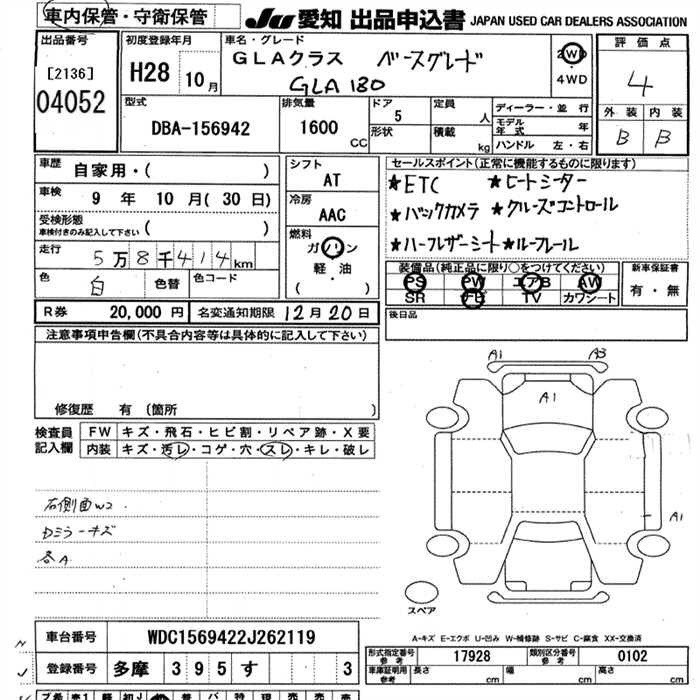 車内保管・守衛保管
JU 愛知 出品申込書 JAPAN USED CAR DEALERS ASSOCIATION
出品番号
[2136]
04052
初度登録年月
H28年 10月
車名・グレード
GLAクラス ベースグレード
GLA 180
2WD
・
4WD
評価点
4
外装 内装
B B
型式
DBA-156942
排気量
1600 CC
ドア
5
形状
定員
人
積載
kg
ディーラー・並行
モデル年式 年
ハンドル 左・右
車歴
自家用・( )
車検
9年 10月(30日)
受検形態
車検付きのみ記入して下さい ( )
走行
5万8千414km
色
白
色替
色コード
シフト
AT
冷房
AAC
燃料
ガソリン
軽・油
( )
セールスポイント(正常に機能するものに限ります)
★ETC ★ヒートシーター
★バックカメラ ★クルーズコントロール
★ハーフレザーシート ★ルーフレール
装備品(純正品に限り○をつけてください)
PS PW エアB AW
SR ナビ TV カワシート
新車保証書
有・無
R券 20,000円 名変通知期限 12月20日
後日品
注意事項申告欄(不具合内容等は具体的に記入して下さい)
修復歴 有 〔箇所 〕
検査員記入欄
FW キズ・飛石・ヒビ割・リペア跡・X要
内装 キズ・汚レ・コゲ・穴・スレ・キレ・破レ
右側面W2
Dミラーキズ
各A
A1 A3
A1
A1
スペア
A-キズ E-エクボ U-凹み W-補修跡 S-サビ C-腐食 XX-交換済
車台番号 WDC1569422J262119
登録番号 多摩 395 す 3
形式指定番号 参考 17928 類別区分番号 参考 0102
車庫証明用 参考 長さ cm 幅 cm 高さ cm